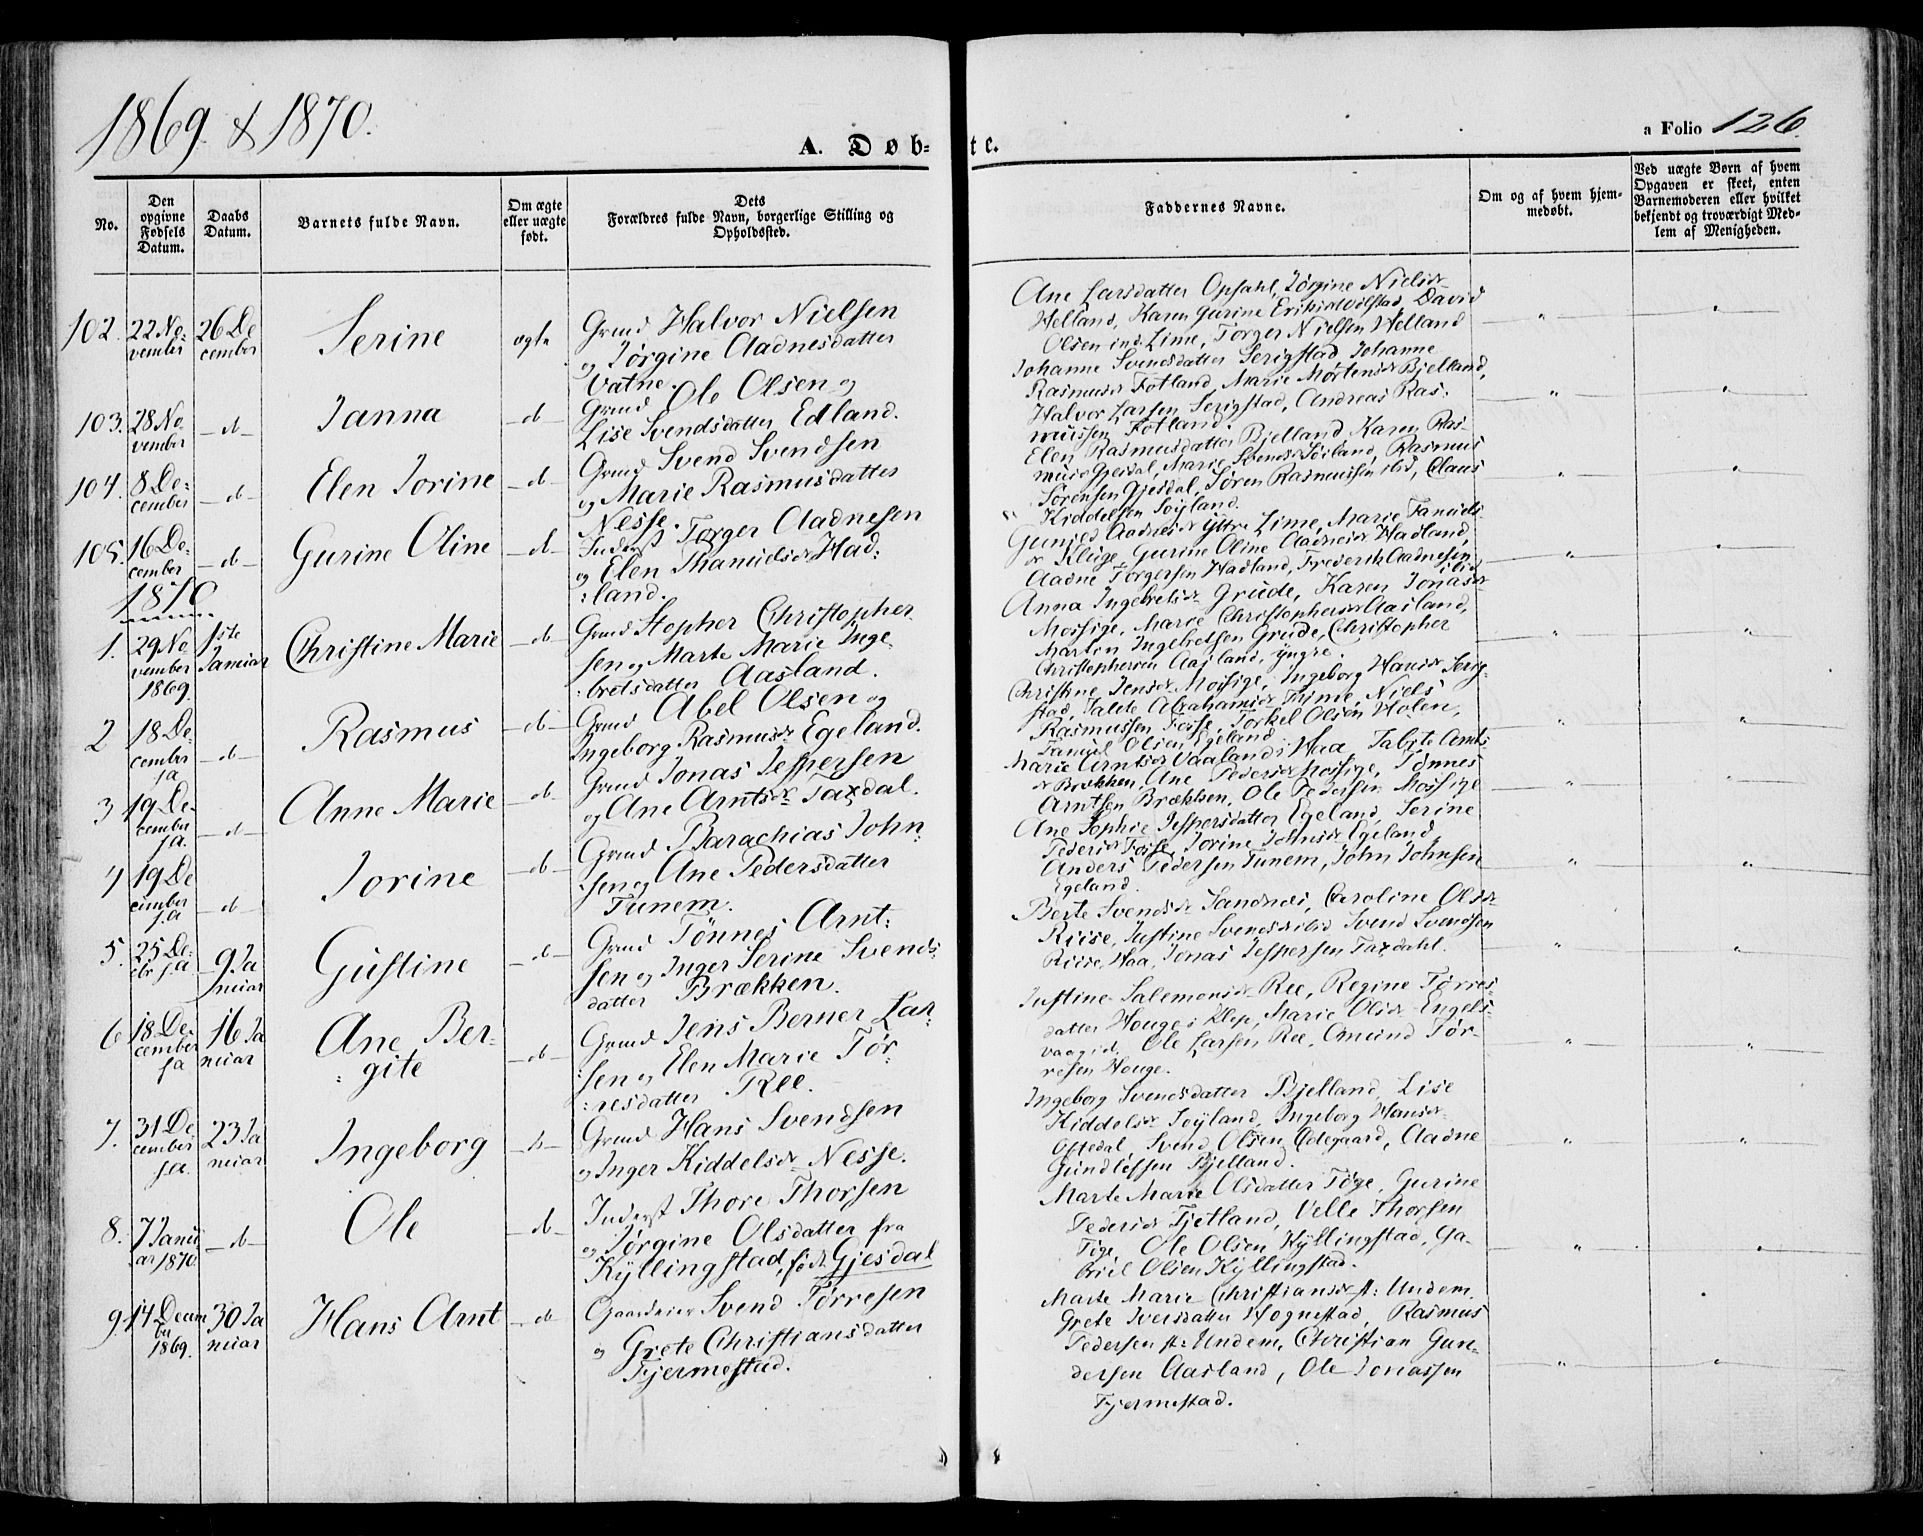 1869 & 1870.
A. Døb-
te.
a Folio 126.
No.
Den opgivne Fødsels Datum.
Daabs Datum.
Barnets fulde Navn.
Om ægte eller uægte født.
Dets Forældres fulde Navn, borgerlige Stilling og Opholdssted.
Faddernes Navne.
Om og af hvem hjemmedøbt.
Ved uægte Børn af hvem Opgaven er skeet, enten Barnemoderen eller hvilket bekjendt og troværdigt Medlem af Menigheden.
102. 22 No-
vember
26 De
cember
Serine
ægte
Grmd Halvor Nielsen
og Jørgine Aadnesdatter
Vatne.
Ane Larsdatter Opsahl, Jørgine Nielsdr
Helland, Karen Gurine Eriksdr Vølstad, David
Olsen ind. Lime, Torger Nielsen Helland
103. 28 No
vember
- d -
Janna
- d -
Grmd Ole Olsen og
Lise Svendsdatter Edland.
Johanne Svendsdatter Serigstad, Johanne
Rasmusdr Fotland, Marie Mortensdr Bjelland,
Halvor Larsen Serigstad, Andreas Ras-
mussen Fotland.
104. 8 De-
cember
- d -
Elen Jorine
- d -
Grmd Svend Svendsen
og Marie Rasmusdatter
Nesse.
Elen Rasmusdatter Bjelland, Karen Ras-
musdr Gjesdal, Marie Svendsdr Søiland, Rasmus
Sørensen Gjesdal, Søren Rasmussen ibid, Claus
Kiddelsen Søyland.
105. 16 De-
cember
- d -
Gurine Oline
- d -
Inderst Torger Aadnesen
og Elen Thanielsdr Had-
:land.
Gunild Aadnesdr Yttre Lime, Marie Taniels-
dr Kluge, Gurine Oline Aadnesdr Hadland,
Aadne Torgersen Hadland, Frederik Aadnesen
ibid
1870
1. 29 No
vember
1869.
1ste
Januar
Christine Marie
- d -
Grmd Stopher Christopher-
sen og Marte Marie Inge
:bretsdatter Aasland.
Anna Ingebretsdr Grude, Karen Jonasdr
Mossige, Marie Christophersdr Aasland,
Martin Ingebretsen Grude, Christopher
Christophersen Aasland, yngre.
2 18 De-
cember
f.a
- d -
Rasmus
- d -
Grmd Abel Olsen og
Ingeborg Rasmusdr Egeland.
Christine Jensdr Mossige, Ingeborg Hansdr Serig-
stad, Talete Abrahamsdr Thime, Niels
Rasmussen Fosse, Torkel Olsen Holen,
Taniel Olsen Egeland
3 19 De-
cember
f.a.
- d -
Anne Marie
- d -
Grmd Jonas Jespersen
og Ane Arntsdr Taxdal.
Marie Arntsdr Vaaland i Haa, Tabite Arnts
dr Brækken, Ane Pedersdr Mossige, Tønnes
Arntsen Brækken, Ole Pedersen Mossige
4 19 De
cember
f.a
- d -
Jorine
- d -
Grmd Barachias John-
:sen og Ane Pedersdatter
Tunem.
Ane Sophie Jespersdatter Egeland, Serine
Pedersdr Fosse, Jorine Johnsdr Egeland,
Anders Pedersen Tunem, John Johnsen
Egeland.
5. 25 De-
cbr f.a
9 Ja
nuar
Gustine
- d -
Grmd Tønnes Arnt:
sen og Inger Serine Svends
datter Brækken.
Berte Svendsdr Sandnes, Caroline Olsdr
Riise, Justine Svendsdr ibid Svend Svendsen
Riise, Haa, Jonas Jespersen Taxdahl.
6 18 De-
cember
f.a
16 Ja
nuar
Ane Ber-
:gite
- d -
Grmd Jens Berner Lar-
:sen og Elen Marie Tør
:resdatter Ree.
Justine Salemonsdr Ree, Regine Tørres-
datter Houge i Klep, Marie Olsdr Engels-
vaag id. Ole Larsen Ree, Omund Tør-
resen Houge.
7. 31 De
cember
f.a.
23 Ja
nuar
Ingeborg
- d -
Grmd Hans Svendsen
og Inger Kiddelsdr Nesse.
Ingeborg Svendsdatter Bjelland, Lise
Kiddelsdr Søyland, Ingeborg Hansdr
Oftedal, Svend Olsen Ødegaard, Aadne
Gundlefsen Bjelland.
8. 7 Janu
ar 1870.
- d -
Ole
- d -
Inderst Thore Thorsen
og Jørgine Olsdatter fra
Kyllingstad, født Gjesdal
Marte Marie Olsdatter Tøge, Gurine
Pedersdr Tjetland, Velle Thorsen
Tøge, Ole Olsen Kyllingstad, Ga-
briel Olsen Kyllingstad.
9. 14 Decem
ber
1869.
30 Ja
nuar
Hans Arnt
- d -
Gaardeier Svend Tørresen
og Grete Christiansdatter
Tjermestad.
Marte Marie Christiansdr st: Undem,
Grete Iversdatter Hognestad, Rasmus
Pedersen st: Undem, Christian Gun-
dersen Aasland, Ole Jonassen
Tjermestad.